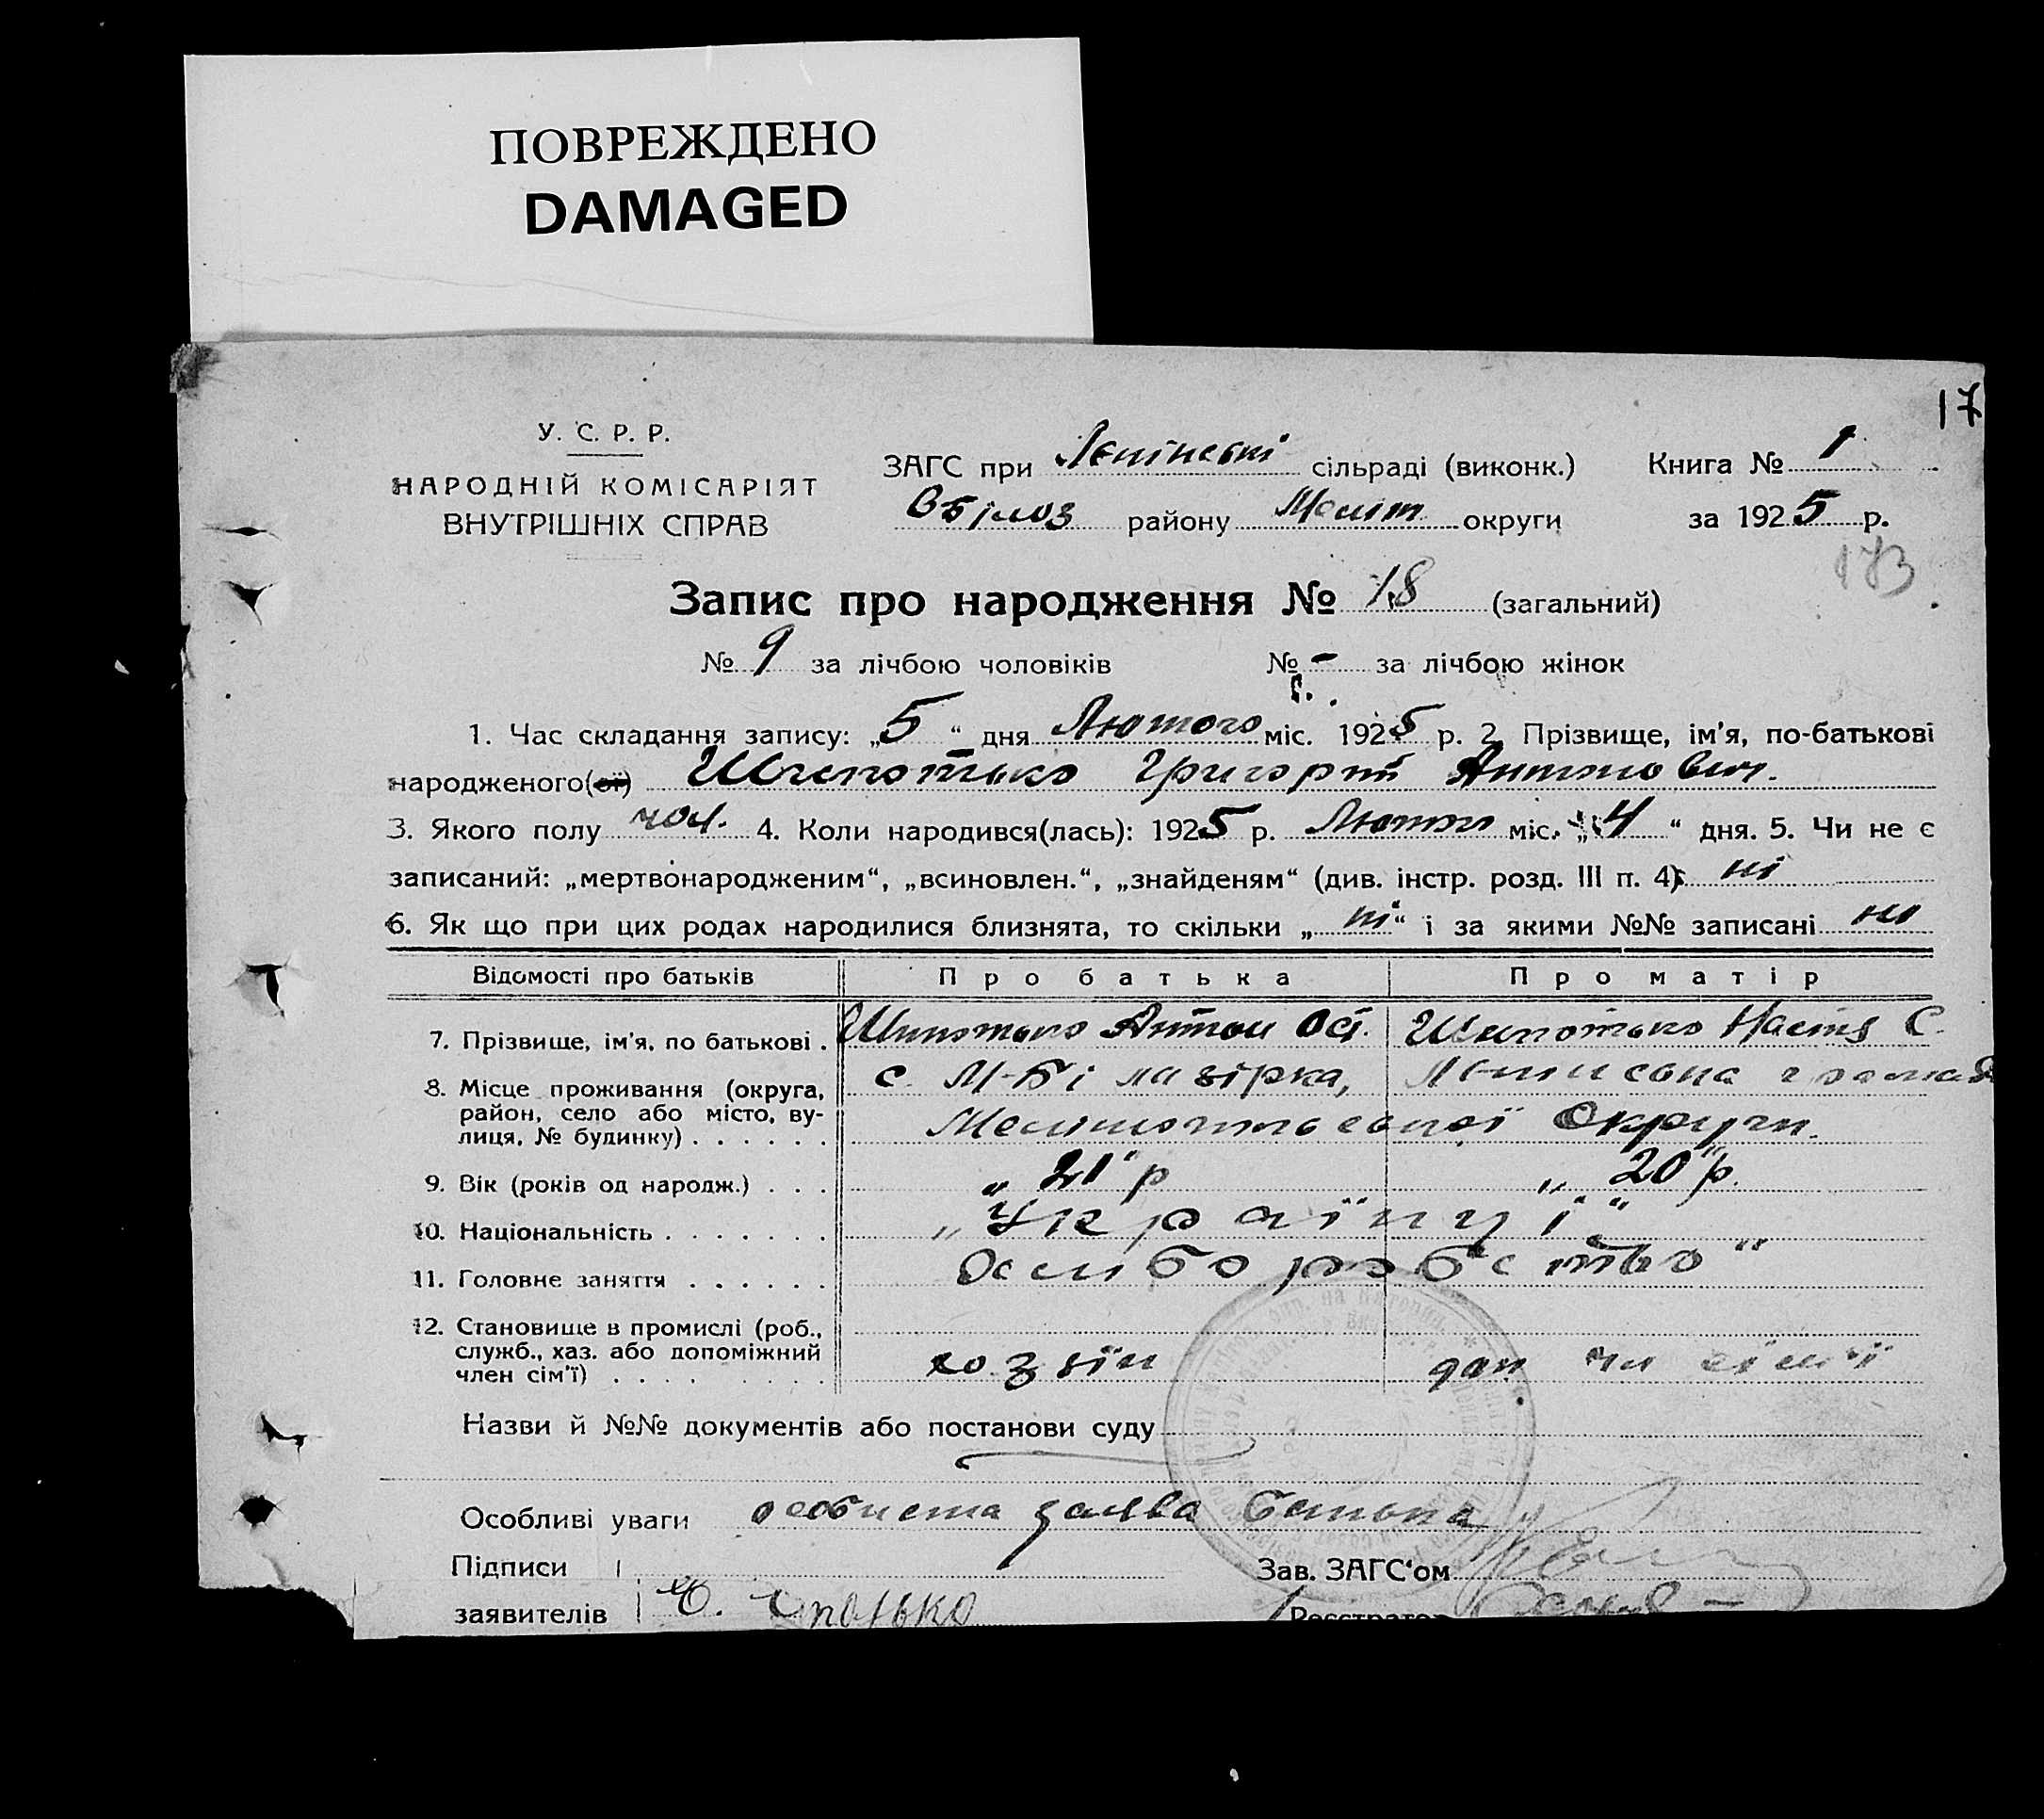 ПОВРЕЖДЕНО
DAMAGED
17
У. С. Р. Р.
НАРОДНІЙ КОМІСАРІЯТ
ВНУТРІШНІХ СПРАВ
ЗАГС при Ленінські сільраді (виконк.) Книга № 1
ВБілоз району Меліт округи за 1925 р.
173
Запис про народження № 18 (загальний)
№ 9 за лічбою чоловіків № - за лічбою жінок
1. Час складання запису: „5“ дня Лютого міс. 1925 р. 2. Прізвище, ім'я, по-батькові
народженого(ої) Шепотько Григорій Антонович.
3. Якого полу чол. 4. Коли народився(лась): 1925 р. Лютого міс. „4“ дня. 5. Чи не є
записаний: „мертвонародженим“, „всиновлен.“, „знайденям“ (див. інстр. розд. III п. 4): ні
6. Як що при цих родах народилися близнята, то скільки „ні“ і за якими №№ записані ні
Відомості про батьків Про батька Про матір
7. Прізвище, ім'я, по батькові . Шепотько Антон Ост. Шепотько Настя С.
8. Місце проживання (округа, с. М-Білазірка,
район, село або місто, ву-
лиця, № будинку) . . . . . . Мелітопольської Округи.
9. Вік (років од народж.) . . . „21“ р „20“ р.
10. Національність . . . . . . . „Українці“
11. Головне заняття . . . . . .
12. Становище в промислі (роб.,
служб., хаз. або допоміжний хозяїн доп чл сім'ї
член сім'ї) . . . . . . . . .
Назви й №№ документів або постанови суду
Особливі уваги особиста заява батька
Підписи Зав. ЗАГС'ом
заявителів Реєстратор